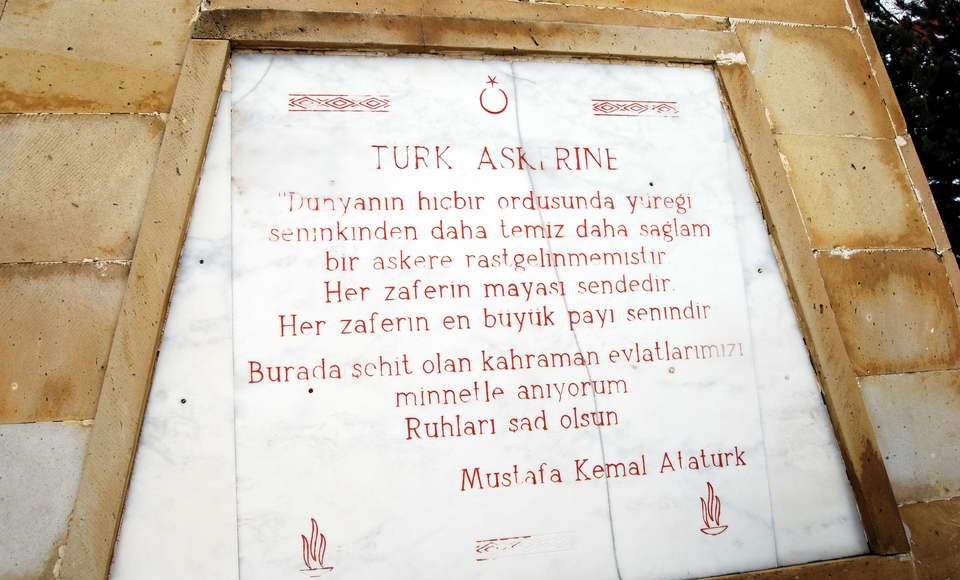 TURK ASKERINE
"Dunyanın hicbir ordusunda yüreği
seninkinden daha temiz daha sağlam
bir askere rastgelinmemistir
Her zaferin mayası sendedir.
Her zaferin en büyük payı senindir
Burada şehit olan kahraman evlatlarımızı
minnetle anıyorum
Ruhları şad olsun
Mustafa Kemal Atatürk